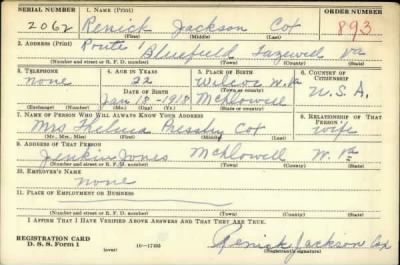 SERIAL NUMBER 1. NAME (Print) ORDER NUMBER
2062 Renick Jackson Cox 893
(First) (Middle) (Last)
2. ADDRESS (Print)
Route 1 Bluefield Tazewell Va
(Number and street or R. F. D. number) (Town) (County) (State)
3. TELEPHONE 4. AGE IN YEARS 5. PLACE OF BIRTH 6. COUNTRY OF CITIZENSHIP
none 22 Wilcoe W. Va
DATE OF BIRTH (Town or county)
Jan 19 1918 McDowell U.S.A.
(Exchange) (Number) (Mo.) (Day) (Yr.) (State or country)
7. NAME OF PERSON WHO WILL ALWAYS KNOW YOUR ADDRESS 8. RELATIONSHIP OF THAT PERSON
Mrs Thelma Pressley Cox wife
(Mr., Mrs., Miss) (First) (Middle) (Last)
9. ADDRESS OF THAT PERSON
Jenkin Jones McDowell W. Va
(Number and street or R. F. D. number) (Town) (County) (State)
10. EMPLOYER'S NAME
none
11. PLACE OF EMPLOYMENT OR BUSINESS
(Number and street or R. F. D. number) (Town) (County) (State)
I AFFIRM THAT I HAVE VERIFIED ABOVE ANSWERS AND THAT THEY ARE TRUE.
REGISTRATION CARD
D. S. S. Form 1 (over) 16-17105 Renick Jackson Cox
(Registrant's signature)